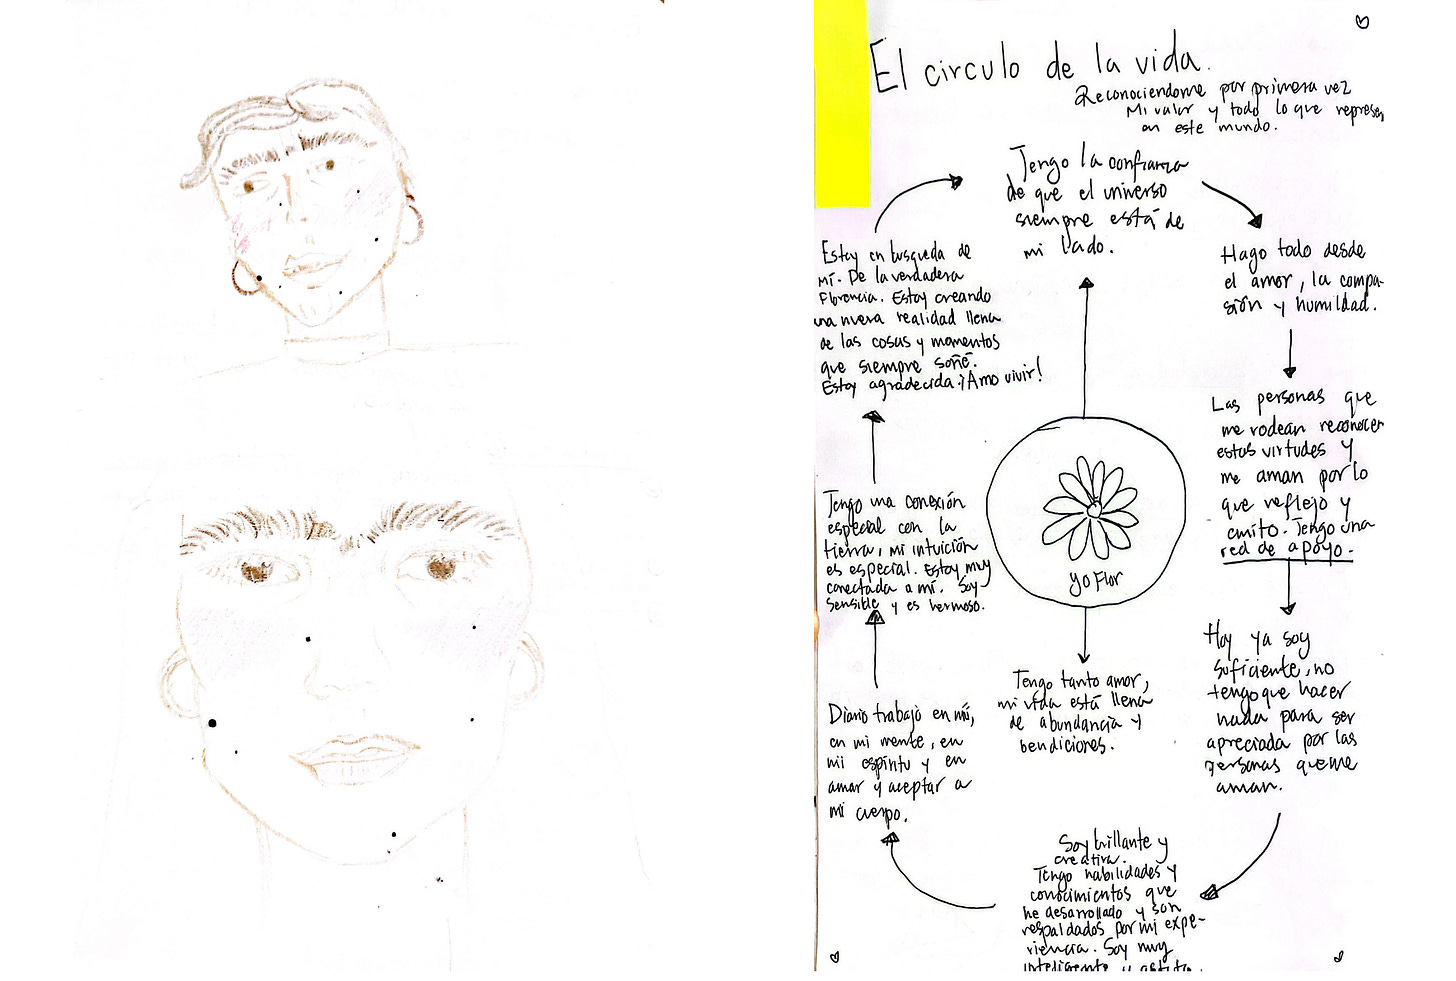 El circulo de la vida.
Reconociendome por primera vez
Mi valor y todo lo que represen
en este mundo.
Tengo la confianza
de que el universo
siempre está de
mi lado.
Hago todo desde
el amor, la compa-
sión y humildad.
Las personas que
me rodean reconocen
estas virtudes y
me aman por lo
que reflejo y
emito. Tengo una
red de apoyo.
Hoy ya soy
suficiente, no
tengo que hacer
nada para ser
apreciada por las
personas que me
aman.
Soy brillante y
creativa.
Tengo habilidades y
conocimientos que
he desarrollado y son
respaldados por mi expe-
riencia. Soy muy
inteligente y astuta.
Diario trabajo en mí,
en mi mente, en
mi espíritu y en
amar y aceptar a
mi cuerpo.
Tengo una conexión
especial con la
tierra, mi intuición
es especial. Estoy muy
conectada a mí. Soy
sensible y es hermoso.
Estoy en busqueda de
mí. De la verdadera
Florencia. Estoy creando
una nueva realidad llena
de las cosas y momentos
que siempre soñé.
Estoy agradecida ¡Amo vivir!
yo Flor
Tengo tanto amor,
mi vida está llena
de abundancia y
bendiciones.